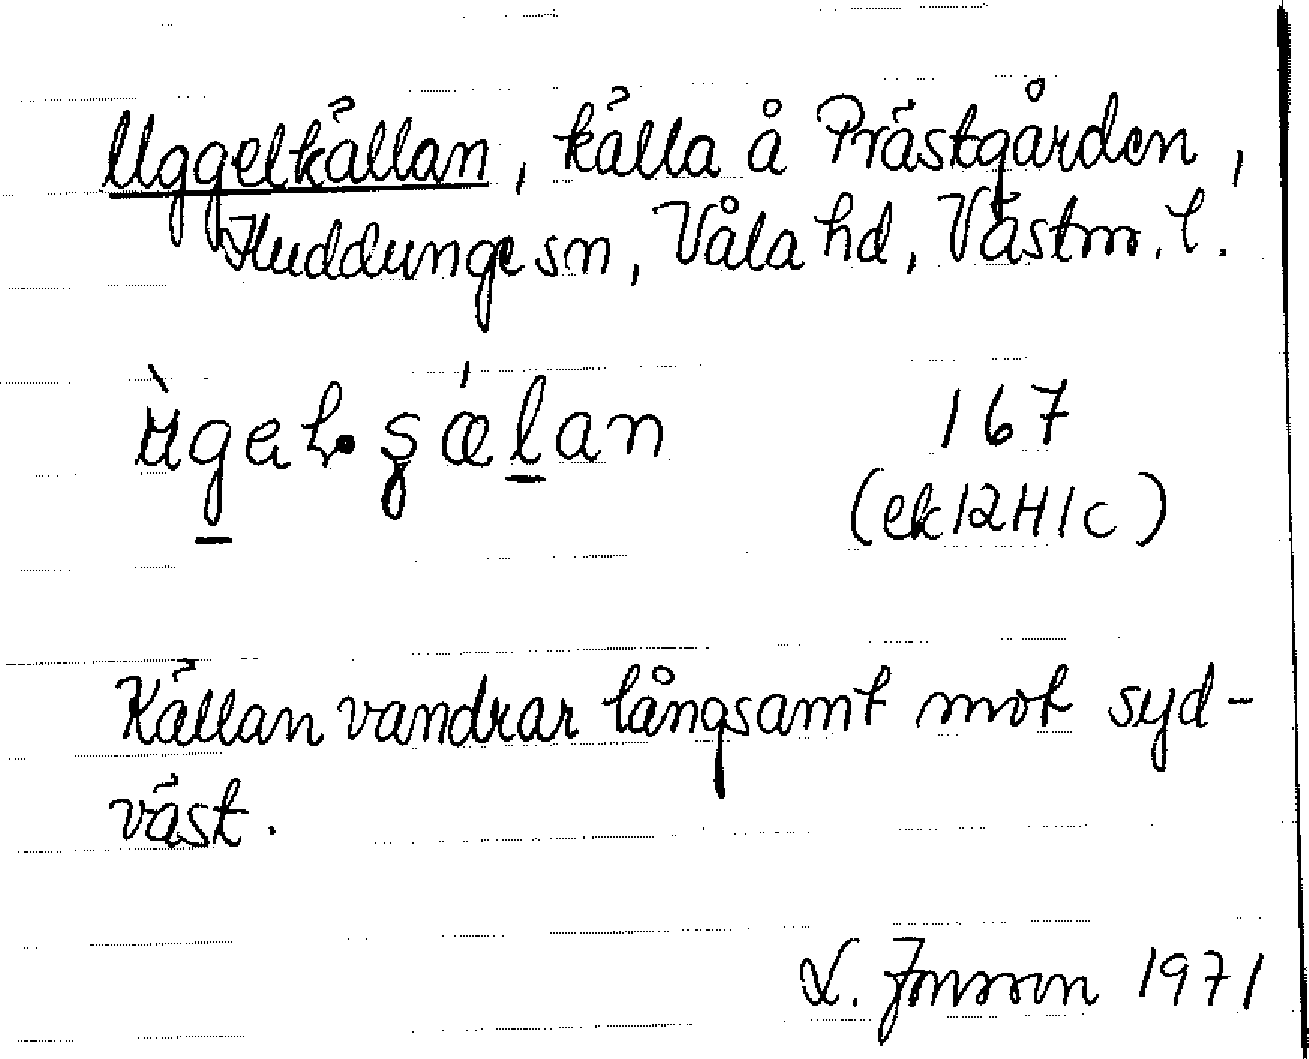 Uggelkällan, källa å Prästgården,
Huddunge sn, Våla hd, Västm. l.
ùgel·şǽlan 167
(ek 12H1c)
Källan vandrar långsamt mot syd-
väst.
L. Jonsson 1971